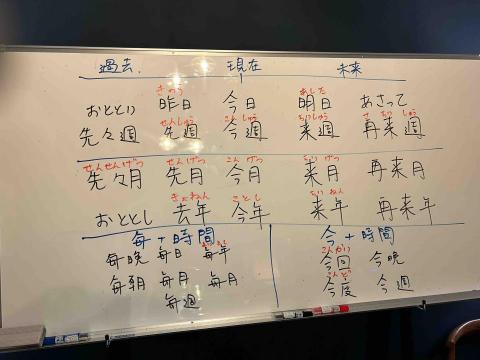 過去 現在 未来
きのう あした
おととい 昨日 今日 明日 あさって
せんしゅう こんしゅう らいしゅう さらいしゅう
先々週 先週 今週 来週 再来週
せんせんげつ せんげつ こんげつ らいげつ
先々月 先月 今月 来月 再来月
きょねん ことし らいねん
おととし 去年 今年 来年 再来年
毎+時間 今+時間
こんかい
毎晩 毎日 毎年 今回 今晩
こんど
毎朝 毎月 毎月 今度 今週
毎週